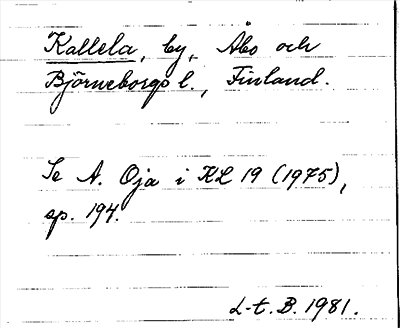 Kallela, by, Åbo och
Björneborgs l., Finland.
Se A. Oja i KL 19 (1975),
sp. 194.
L-t. B. 1981.